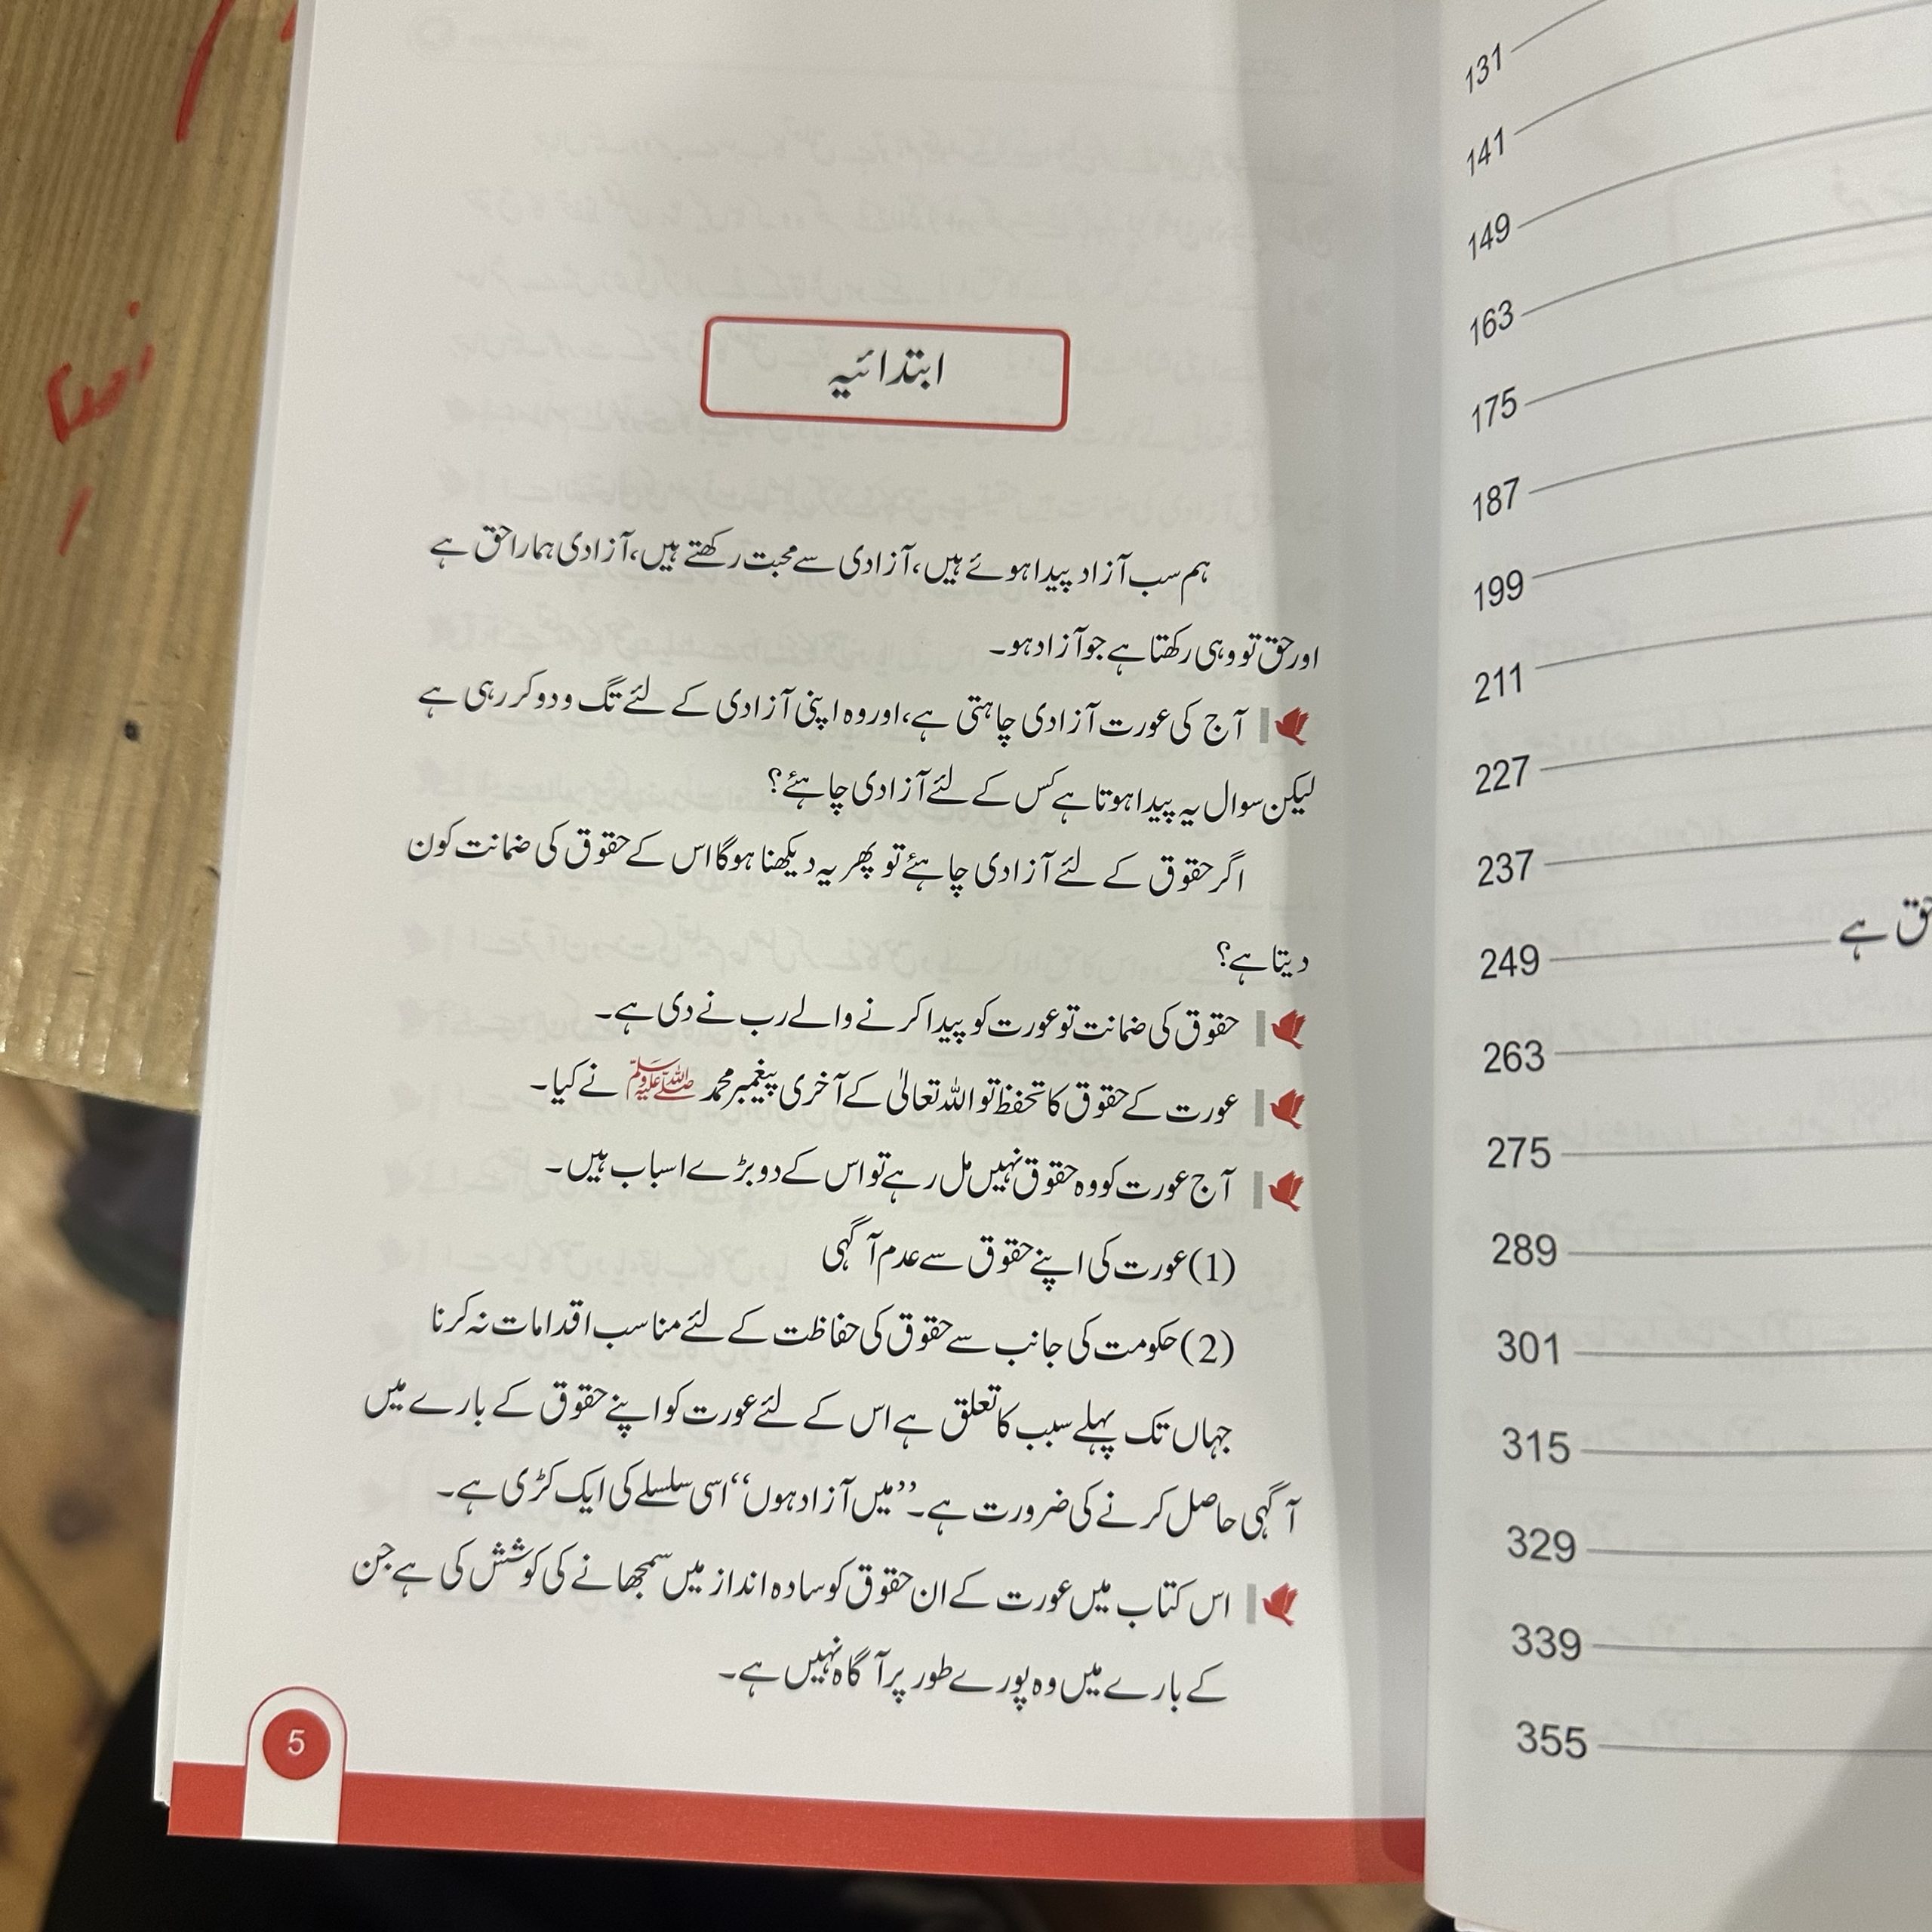 ابتدائیہ
ہم سب آزاد پیدا ہوئے ہیں، آزادی سے محبت رکھتے ہیں، آزادی ہمارا حق ہے
اور حق تو وہی رکھتا ہے جو آزاد ہو۔
آج کی عورت آزادی چاہتی ہے، اور وہ اپنی آزادی کے لئے تگ و دو کر رہی ہے
لیکن سوال یہ پیدا ہوتا ہے کس کے لئے آزادی چاہئے؟
اگر حقوق کے لئے آزادی چاہئے تو پھر یہ دیکھنا ہوگا اس کے حقوق کی ضمانت کون
دیتا ہے؟
حقوق کی ضمانت تو عورت کو پیدا کرنے والے رب نے دی ہے۔
عورت کے حقوق کا تحفظ تو اللہ تعالیٰ کے آخری پیغمبر محمد ﷺ نے کیا۔
آج عورت کو وہ حقوق نہیں مل رہے تو اس کے دو بڑے اسباب ہیں۔
(1) عورت کی اپنے حقوق سے عدم آگہی
(2) حکومت کی جانب سے حقوق کی حفاظت کے لئے مناسب اقدامات نہ کرنا
جہاں تک پہلے سبب کا تعلق ہے اس کے لئے عورت کو اپنے حقوق کے بارے میں
آگہی حاصل کرنے کی ضرورت ہے۔ ”میں آزاد ہوں“ اسی سلسلے کی ایک کڑی ہے۔
اس کتاب میں عورت کے ان حقوق کو سادہ انداز میں سمجھانے کی کوشش کی ہے جن
کے بارے میں وہ پورے طور پر آگاہ نہیں ہے۔
5
131
141
149
163
175
187
199
211
227
237
حق ہے 249
263
275
289
301
315
329
339
355